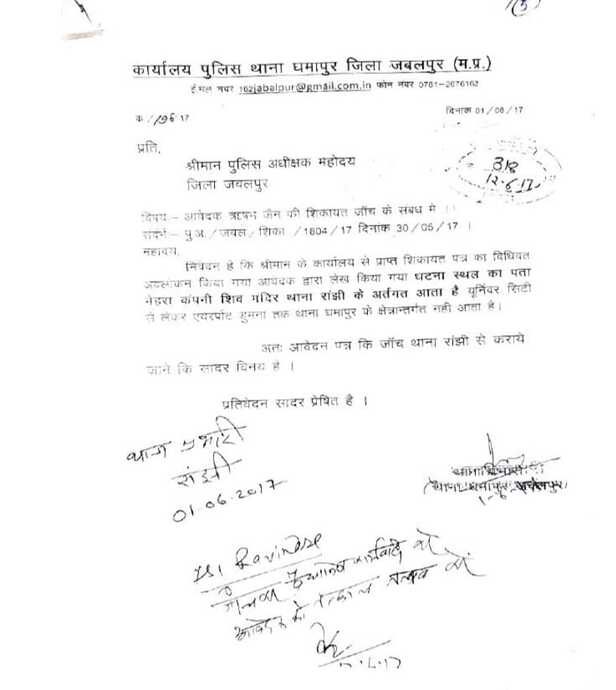 (5)
कार्यालय पुलिस थाना घमापुर जिला जबलपुर (म.प्र.)
ई.मेल नंवर 162jabalpur@gmail.com.in फोन नंवर 0761-2676162
क्र./196/17 दिनांक 01/06/17
प्रति,
श्रीमान पुलिस अधीक्षक महोदय
जिला जवलपुर
318
12.6.17
विषयः- आवेदक ऋषभ जैन की शिकायत जॉच के संबंध मे ।।
संदर्भः- पु.अ./जवल/शिका /1804/17 दिनांक 30/05/17 ।
महोदय,
निवेदन है कि श्रीमान के कार्यालय से प्राप्त शिकायत पत्र का विधिवत
अवलोकन किया गया आवेदक द्वारा लेख किया गया घटना स्थल का पता
मेहरा कंपनी शिव मंदिर थाना रांझी के अर्तगत आता है यूनिवर सिटी
से लेकर एयरपोट डुमना तक थाना घमापुर के क्षेत्रान्तर्गत नही आता है।
अतः आवेदन पत्र कि जॉच थाना रांझी से कराये
जाने कि सादर विनय है ।
प्रतिवेदन सादर प्रेषित है ।
थाना प्रभारी
रांझी
01.06.2017
थाना प्रभारी
(थाना घमापुर जबलपुर)
Ravindra
को
आवेदक को तत्काल